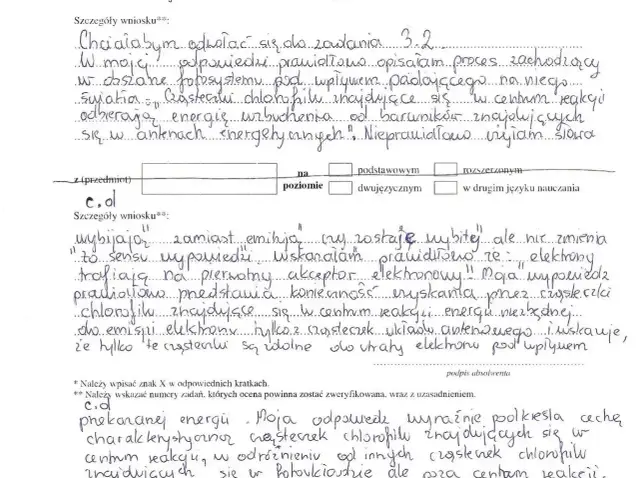 Szczegóły wniosku**:
Chciałabym odwołać się do zadania 3.2.
W mojej odpowiedzi prawidłowo opisałam proces zachodzący
w obszarze fotosystemu pod wpływem padającego na niego
światła: „Cząsteczki chlorofilu znajdujące się w centrum reakcji
odbierają energię wzbudzenia od barwników znajdujących
się w antenach energetycznych". Nieprawidłowo użyłam słowa
z (przedmiot) na poziomie podstawowym rozszerzonym
dwujęzycznym w drugim języku nauczania
c.d
Szczegóły wniosku**:
wybijają" zamiast „emitują" czy zostaje wybity" ale nie zmienia
to sensu wypowiedzi. wskazałam prawidłowo że: „elektrony
trafiają na pierwotny akceptor elektronowy". Moja wypowiedź
prawidłowo przedstawia konieczność uzyskania przez cząsteczki
chlorofilu znajdujące się w centrum reakcji energii niezbędnej
do emisji elektronu tylko z cząsteczek układu antenowego i wskazuje,
że tylko te cząsteczki są zdolne do utraty elektronu pod wpływem
podpis absolwenta
* Należy wpisać znak X w odpowiednich kratkach.
** Należy wskazać numery zadań, których ocena powinna zostać zweryfikowana, wraz z uzasadnieniem.
c.d
przekazanej energii. Moja odpowiedź wyraźnie podkreśla cechę
charakterystyczną cząsteczek chlorofilu znajdujących się w
centrum reakcji, w odróżnieniu od innych cząsteczek chlorofilu
znajdujących się w fotoukładzie ale poza centrum reakcji.